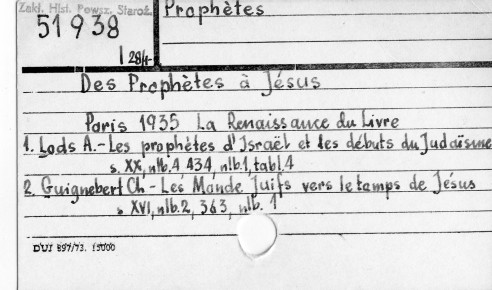 Zakł. Hist. Powsz. Staroż.
Prophètes
51938
I 284
Des Prophètes à Jésus
Paris 1935 La Renaissance du Livre
1. Lods A.-Les prophètes d'Israël et les débuts du Judaïsme
s. XX, nlb.4, 434, nlb.1, tabl.1
2. Guignebert Ch-Les Monde Juifs vers le temps de Jésus
s XVI, nlb.2, 363, nlb. 1
DUJ 897/73. 15000